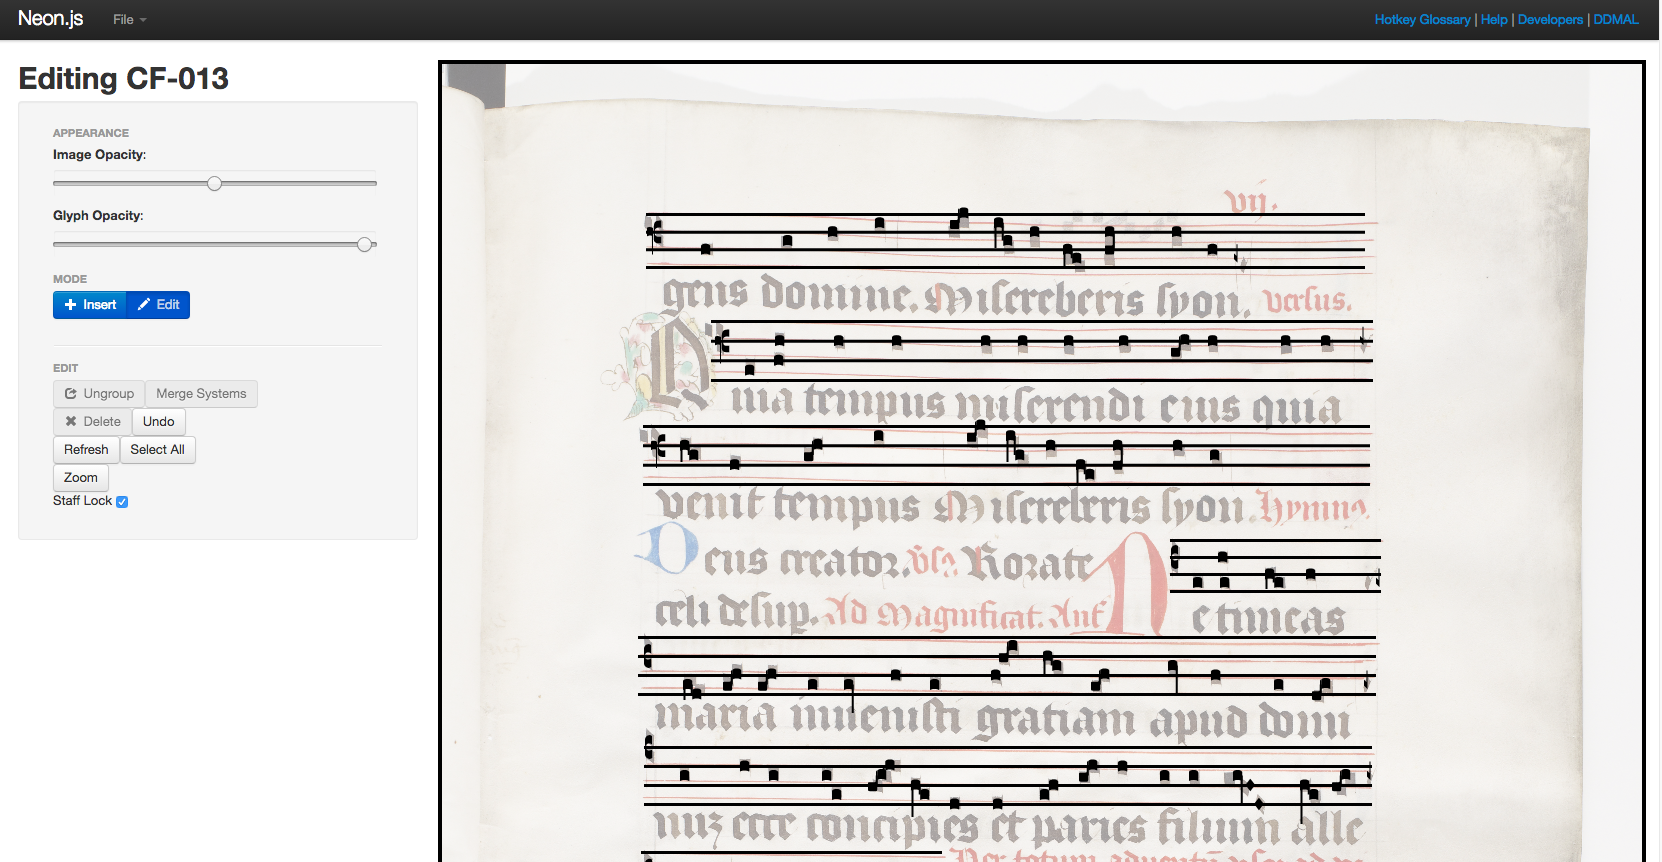 Neon.js File Hotkey Glossary | Help | Developers | DDMAL
Editing CF-013
APPEARANCE
Image Opacity:
Glyph Opacity:
MODE
Insert Edit
EDIT
Ungroup Merge Systems
Delete Undo
Refresh Select All
Zoom
Staff Lock
vij.
gens domine. Misereberis syon. versus.
Quia tempus miserendi eius quia
venit tempus Misereberis syon. Hymnus.
Deus creator. Rorate
celi desup. Ad Magnificat. Ant
Ne timeas
maria invenisti gratiam apud domi
num ecce concipies et paries filium alle